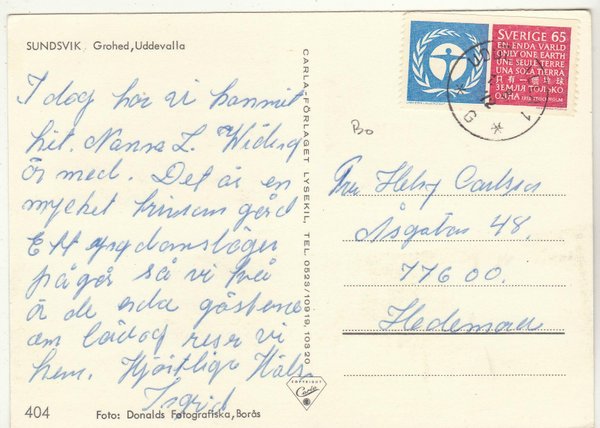 SUNDSVIK Grohed, Uddevalla
I dag har vi kommit
hit. Nanna L. Widing
är med. Det är en
mycket trivsam gård
Ett ungdomsläger
pågår så vi två
är de enda gästerna
om lördag reser vi
hem. Hjärtliga Häls.
Ingrid
404 Foto: Donalds Fotografiska, Borås
CARLA-FÖRLAGET LYSEKIL. TEL. 0523/10919, 10320
COPYRIGHT
Carla
SVERIGE 65
EN ENDA VÄRLD
ONLY ONE EARTH
UNE SEULE TERRE
UNA SOLA TIERRA
Bo
Fru Helny Carlsson
Åsgatan 48.
77600.
Hedemora